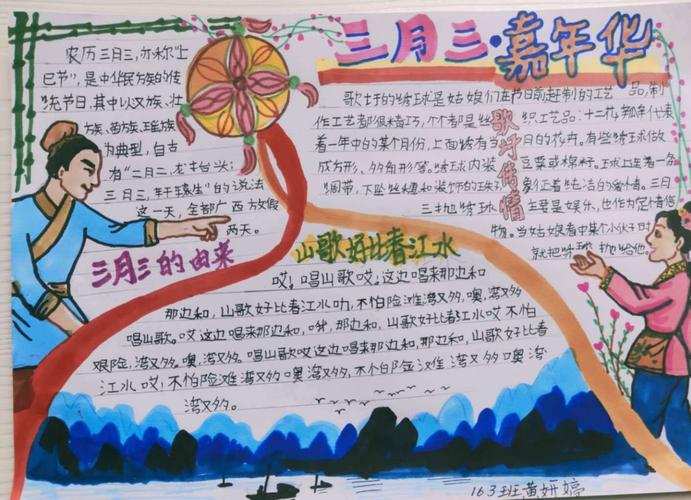 三月三·嘉年华
农历三月三,亦称"上
巳节",是中华民族的传
统节日,其中以汉族、壮
族、苗族、瑶族
为典型,自古
有"二月二,龙抬头;
三月三,轩辕生"的说法
这一天,全部广西放假
两天。
三月三的由来
歌圩的绣球是姑娘们在节日前赶制的工艺品,制
作工艺都很精巧,个个都是丝织工艺品:十二花,都代表
着一年中的某个月份,上面绣有当月的花卉。有些绣球做
成方形、多角形等。绣球内装豆粟或棉籽。球上连着一条
绸带,下坠丝穗和装饰的珠
象征着纯洁的爱情。三月
三抛绣球
主要是娱乐,也作为定情信
物。当姑娘看中某个小伙子时
就把绣球抛给他。
歌圩传情
山歌好比春江水
哎,唱山歌哎。这边唱来那边和
那边和,山歌好比春江水叻,不怕险滩湾又多,噢,湾又多
唱山歌。哎这边唱来那边和,那边和,山歌好比春江水哎不怕
艰险,湾又多。噢,湾又多。唱山歌哎这边唱来那边和,那边和,山歌好比春
江水哎,不怕险难湾又多噢湾又多,不怕险难湾又多噢湾
湾又多。
163班黄妍婷